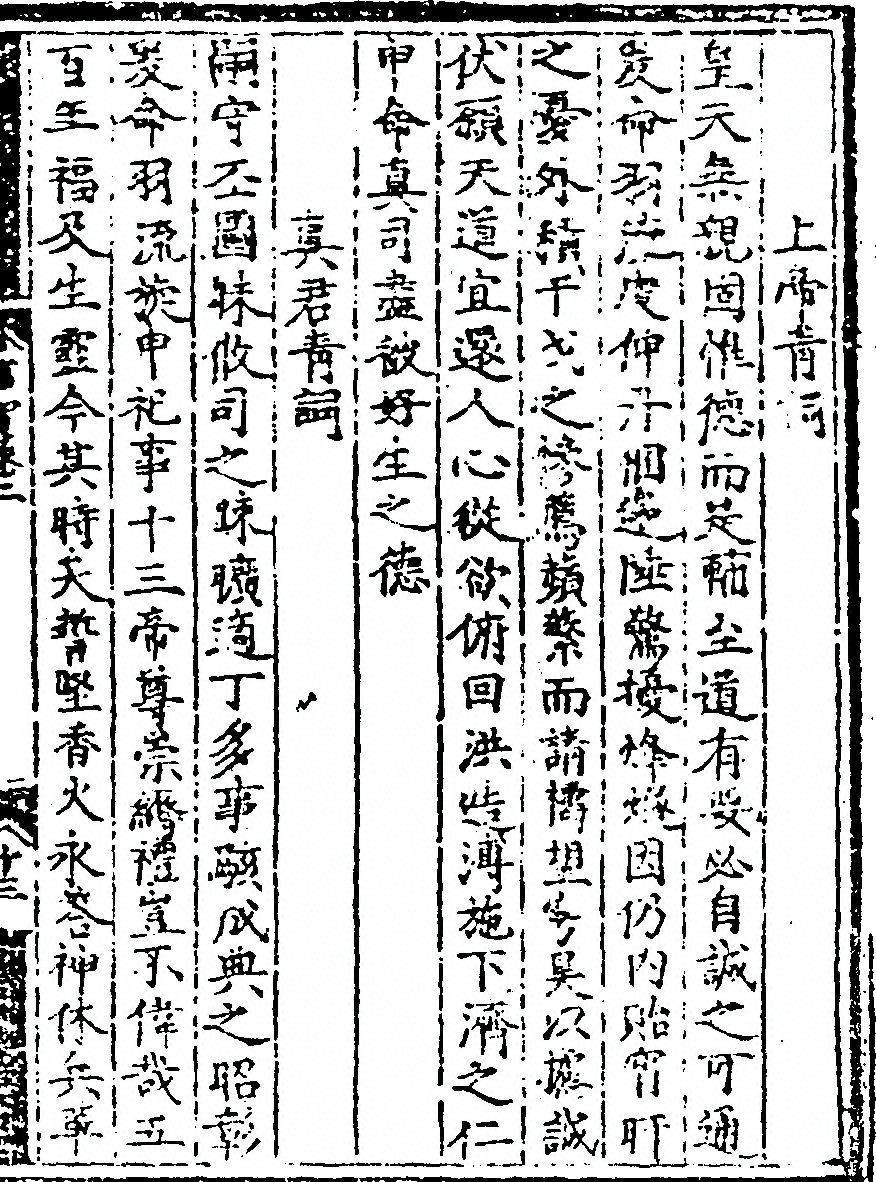 上帝青詞
皇天無親固惟德而是輔至道有要必自誠之可通
爰命羽流虔伸丹悃邊陲驚擾烽燧因仍內貽宵旰
之憂外積干戈之慘薦蘋蘩而請禱望穹昊以攄誠
伏願天道宜還人心從欲俯回洪造溥施下濟之仁
申命真司盡啟好生之德
真君青詞
嗣守丕圖昧攸司之疎曠適丁多事闕成典之昭彰
爰命羽流旋申祀事十三帝尊崇縟禮豈不偉哉五
百年福及生靈今其時矣誓堅香火永荅神休兵革
卷二
十三